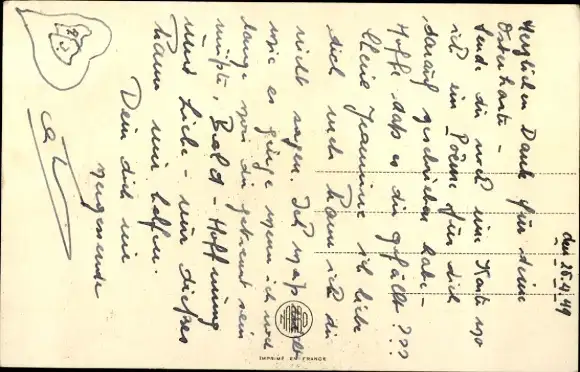 den 25.4.49
Herzlichen Dank für deine
Osterkarte –
sende dir noch eine Karte wo
ich ein Poème für dich
darauf geschrieben habe –
Hoffe, dass es dir gefällt???
Meine Jeannine ich liebe
dich mehr kann ich dir
nicht sagen. Ich weiß nicht
wie es ginge wenn ich noch
lange von dir getrennt sein
müsste. Bald – Hoffnung
und Liebe – nur dieses
kann mir helfen.
Dein dich nie
vergessende
IMPRIMÉ EN FRANCE